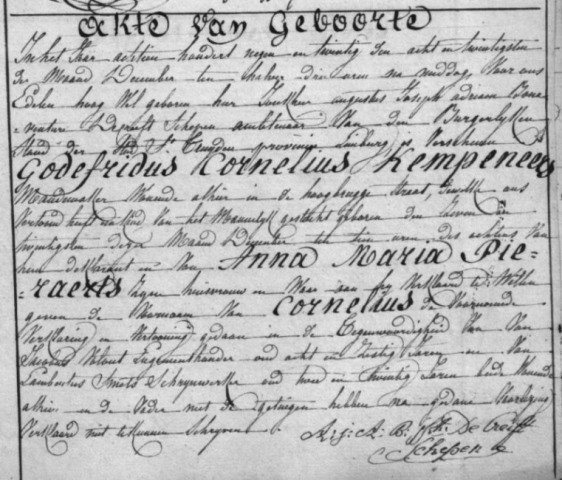 Akte Van Geboorte
In het Jaar achtien hondert negen en twintig den acht en twintigsten
der Maand December ten drie uren na middag, Voor ons
Edelen hoog Wel geboren heer Augustus Joseph adriaen
Schepen ambtenaer Van den Burgerlyken
Stand der Stad St Truyden provincie Limburg is Verschenen
Godefridus Cornelius Kempeneers
Mandemaker Woonende alhier in de straat, dewelke ons
Vertoond heeft een kind Van het Mannelyk geslacht geboren den zeven en
twintigsten dezer Maand December ten uren des Van
hem declarant en Van Anna Maria Pie-
raerts Zynen huisvrouw en Waar aan hy Verklaard te Willen
geven de Voornaam Van Cornelius de Voornoemde
Verklaring en Vertooning gedaan in de Tegenwoordigheid Van
oud acht en Zestig Jaren en Van
Lambertus Smets Schrynwerker oud twee en Twintig Jaren beide Woonende
alhier en de Vader met de getuigen hebben na gedane Voorlezing
Verklaard niet te kunnen Schryven
A. J. A. B. De Creeft
Schepen